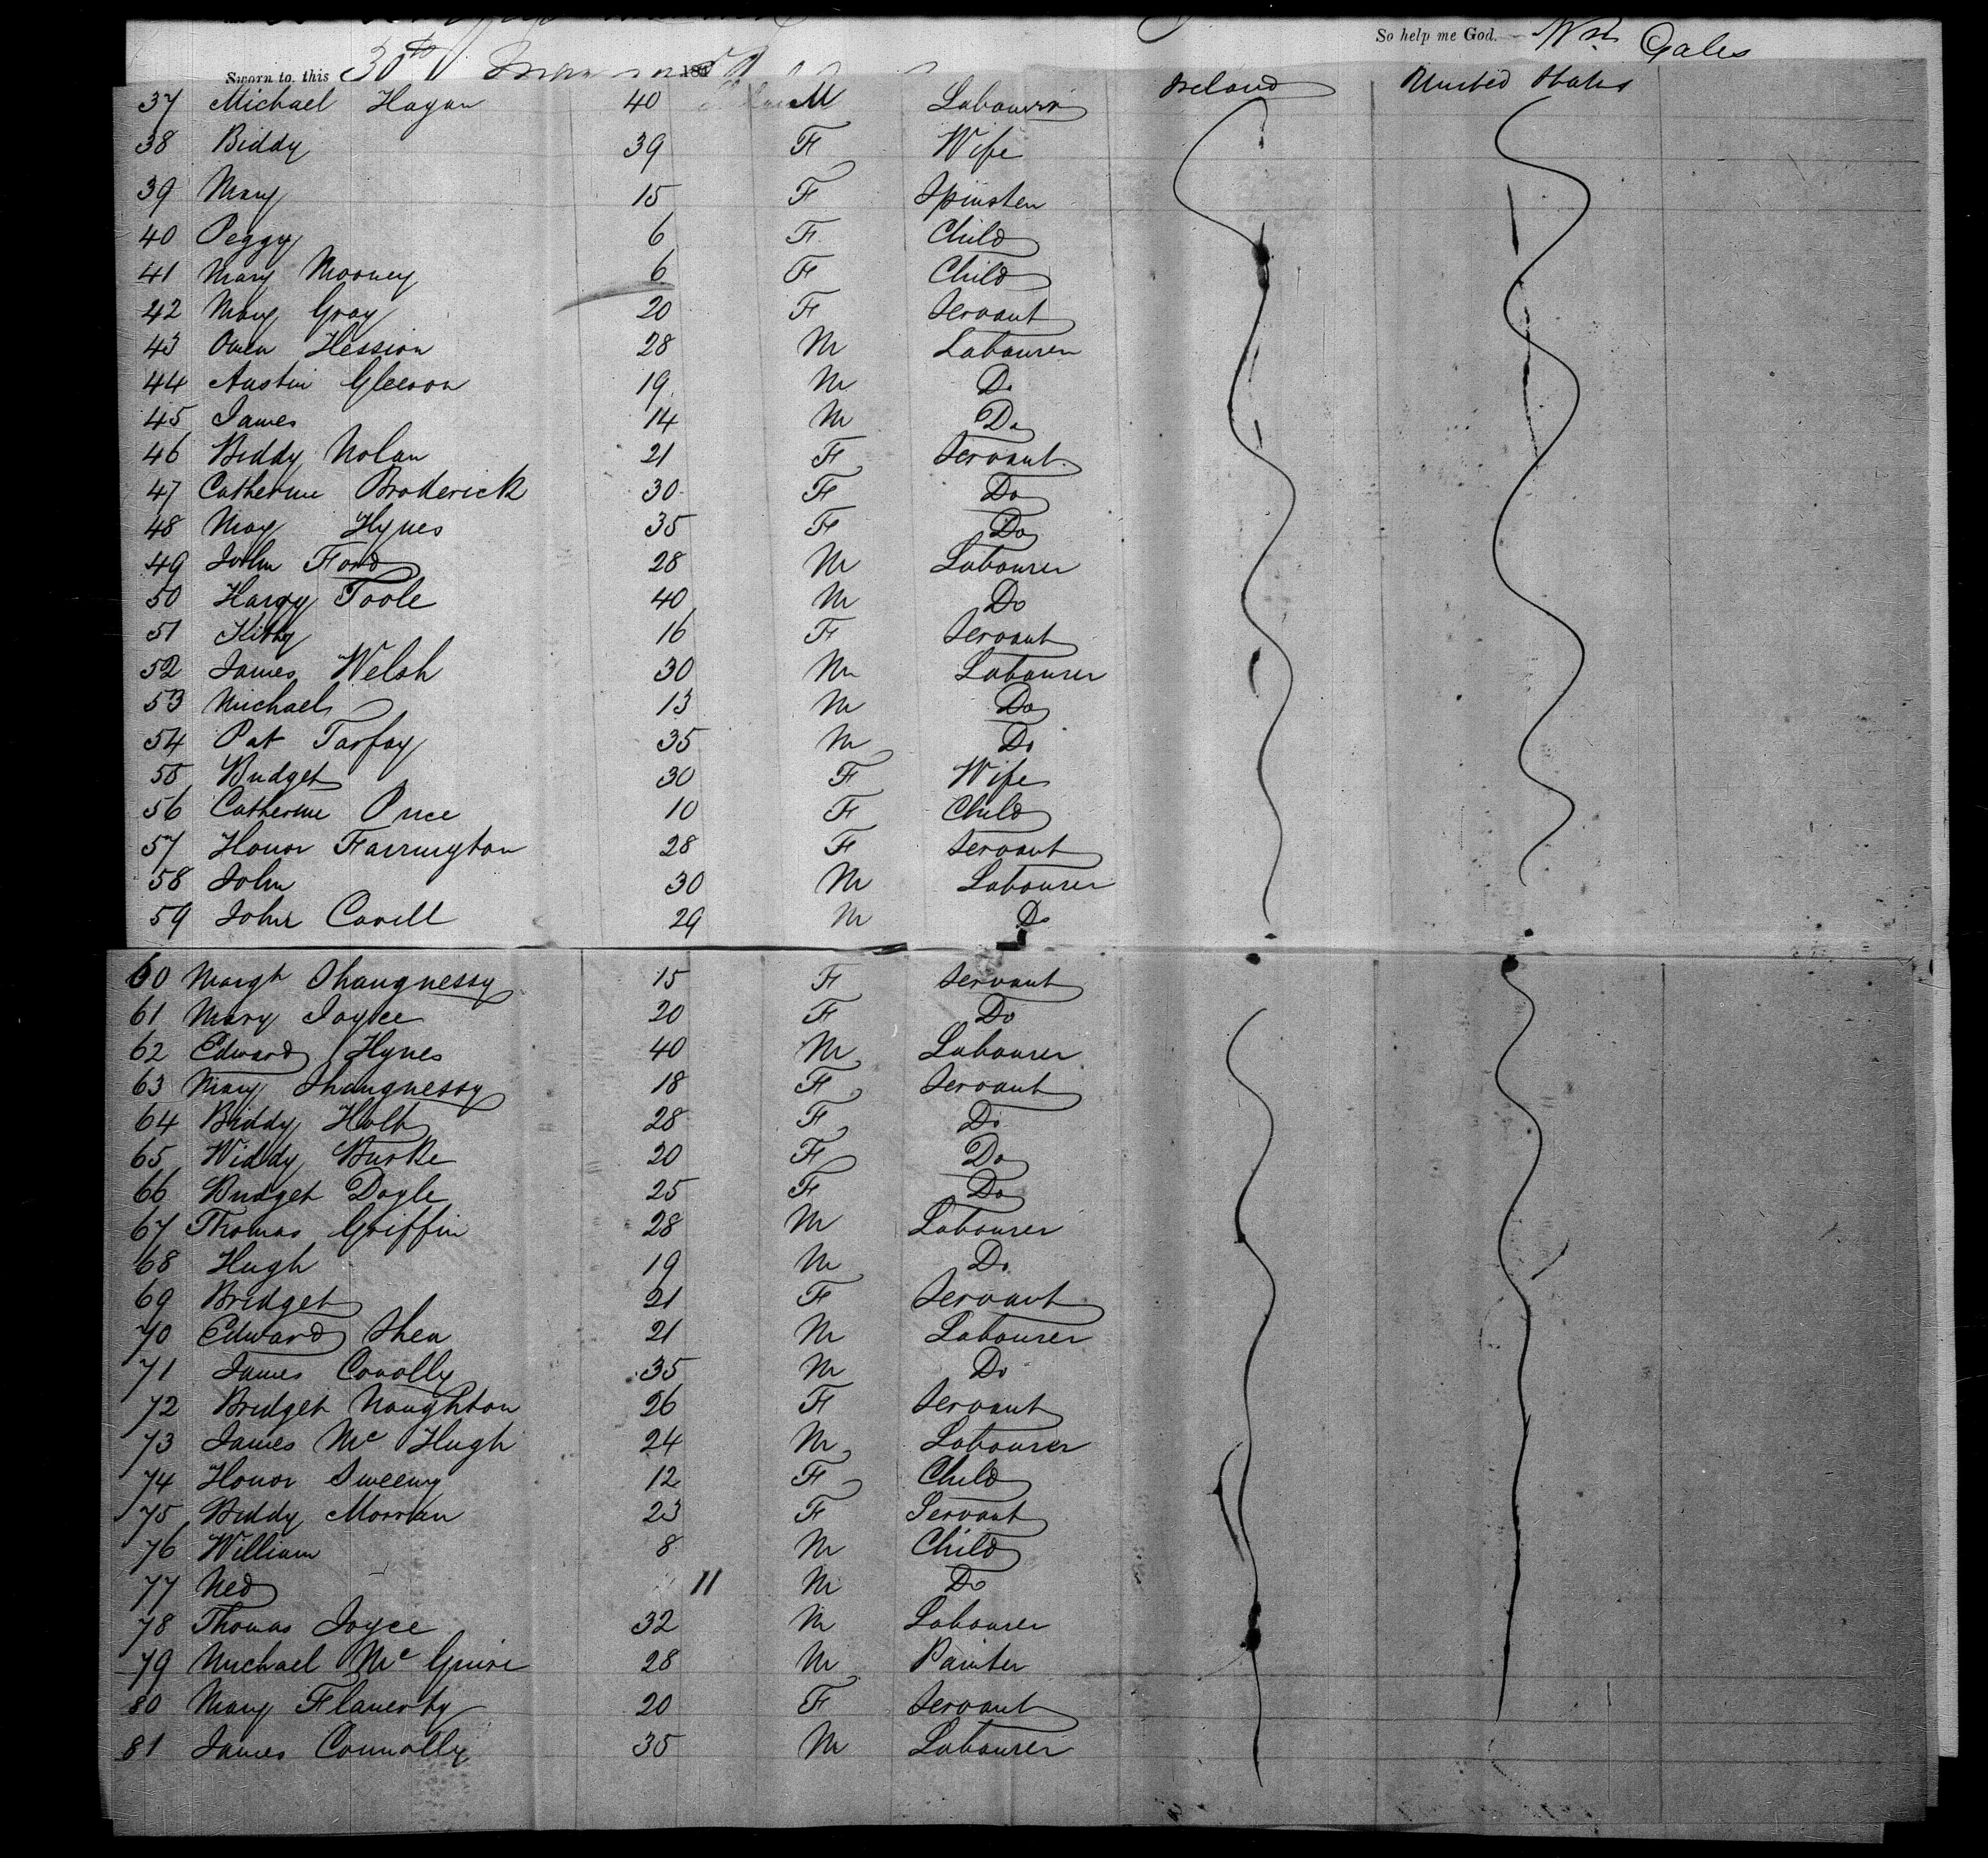 So help me God. Wm Gales
Sworn to, this 30th 18
37 Michael Hagan 40 M Labourer Ireland United States
38 Biddy 39 F Wife
39 Mary 15 F Spinster
40 Peggy 6 F Child
41 Mary Mooney 6 F Child
42 Mary Gray 20 F Servant
43 Owen Hession 28 M Labourer
44 Austin Gleeson 19 M Do
45 James 14 M Do
46 Biddy Nolan 21 F Servant
47 Catherine Broderick 30 F Do
48 May Hynes 35 F Do
49 John Ford 28 M Labourer
50 Toole 40 M Do
51 Kitty 16 F Servant
52 James Welsh 30 M Labourer
53 Michael 13 M Do
54 Pat Tarfay 35 M Do
55 Bridget 30 F Wife
56 Catherine Price 10 F Child
57 Honor Farrington 28 F Servant
58 John 30 M Labourer
59 John Cavill 29 M Do
60 Margt Shaugnessy 15 F Servant
61 Mary Joyce 20 F Do
62 Edward Hynes 40 M Labourer
63 Mary Shaugnessy 18 F Servant
64 Biddy Holt 28 F Do
65 Widdy Burke 20 F Do
66 Bridget Doyle 25 F Do
67 Thomas Griffin 28 M Labourer
68 Hugh 19 M Do
69 Bridget 21 F Servant
70 Edward Shea 21 M Labourer
71 James Conolly 35 M Do
72 Bridget Naughton 26 F Servant
73 James Mc Hugh 24 M Labourer
74 Honor Sweeny 12 F Child
75 Biddy 23 F Servant
76 William 8 M Child
77 Ned 11 M Do
78 Thomas Joyce 32 M Labourer
79 Michael Mc Guire 28 M Painter
80 Mary Flanerty 20 F Servant
81 James Connolly 35 M Labourer